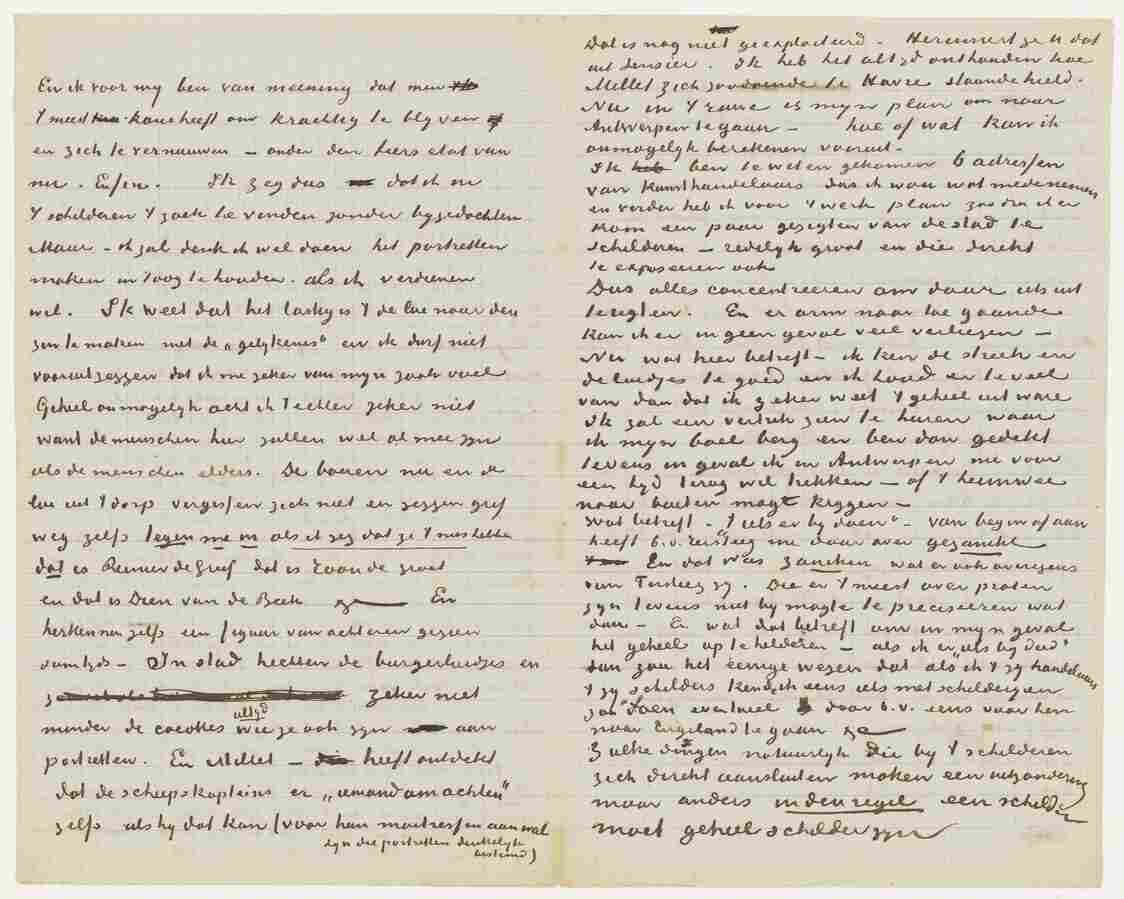 En ik voor mij ben van meening dat men
't meest kans heeft om krachtig te blijven
en zich te vernieuwen – onder den tiers etat van
nu. Enfin. Ik zeg dus dat ik in
't schilderen 't zoek te vinden zonder bijgedachten
Maar – ik zal denk ik wel doen het portretten
maken in 't oog te houden. als ik verdienen
wil. Ik weet dat het lastig is 't de lui naar den
zin te maken met de „gelijkenis” en ik durf niet
vooruit zeggen dat ik me zeker van mijn zaak voel
Geheel onmogelijk acht ik 't echter zeker niet
want de menschen hier zullen wel al mee zijn
als de menschen elders. De boeren nu en de
lui uit 't dorp vergissen zich niet en zeggen grif
weg zelfs tegen me in als ik zeg dat ze 't mis hebben
dat is Renier de Greef dat is Toon de Groot
en dat is Dien van de Beek &c. En
herkennen zelfs een figuur van achteren gezien
somtijds – In stad hechten de burgerluidjes en
zeker niet
minder de cocottes altijd wie ze ook zijn aan
portretten. En Millet – heeft ontdekt
dat de scheepskapiteins er „iemand om achten”
zelfs als hij dat kan (voor hun maitressen aan wal
zijn die portretten denkelijk
bestemd)
Dat is nog niet geexploiteerd – Herinnert ge U dat
uit Sensier. Ik heb het altijd onthouden hoe
Millet zich zoodoende te Havre staande hield.
Nu in 't ruwe is mijn plan om naar
Antwerpen te gaan – hoe of wat kan ik
onmogelijk berekenen vooruit –
Ik ben te weten gekomen 6 adressen
van kunsthandelaars dus ik wou wat medenemen
en verder heb ik voor 't werk plan zoodra ik er
kom een paar gezigten van de stad te
schilderen – redelijk groot en die direkt
te exposeeren ook
Dus alles concentreeren om daar iets uit
te rigten. En er arm naar toe gaande
kan ik er in geen geval veel verliezen –
Nu wat hier betreft – ik ken de streek en
de luidjes te goed en ik houd er te veel
van dan dat ik zeker weet 't geheel uit ware
Ik zal een vertrek zien te huren waar
ik mijn boel berg en ben dan gedekt
tevens in geval ik in Antwerpen me voor
een tijd terug wil trekken – of 't heimwee
naar buiten mogt krijgen –
Wat betreft – „iets er bij doen” – van begin af aan
heeft b.v. Tersteeg me daar over gezanikt
En dat was zaniken wat er ook overigens
van Tersteeg zij. Die er 't meest over praten
zijn tevens niet bij magte te preciseeren wat
dan – En wat dat betreft om in mijn geval
het geheel op te helderen – als ik er „iets bij deed”
dan zou het eenige wezen dat als ik 't zij handelaars
't zij schilders kende ik eens iets met schilderijen
zou doen eventueel door b.v. eens voor hen
naar Engeland te gaan &c
Zulke dingen natuurlijk die bij 't schilderen
zich direkt aansluiten maken een uitzondering
maar anders in den regel een schilder
moet geheel schilder zijn